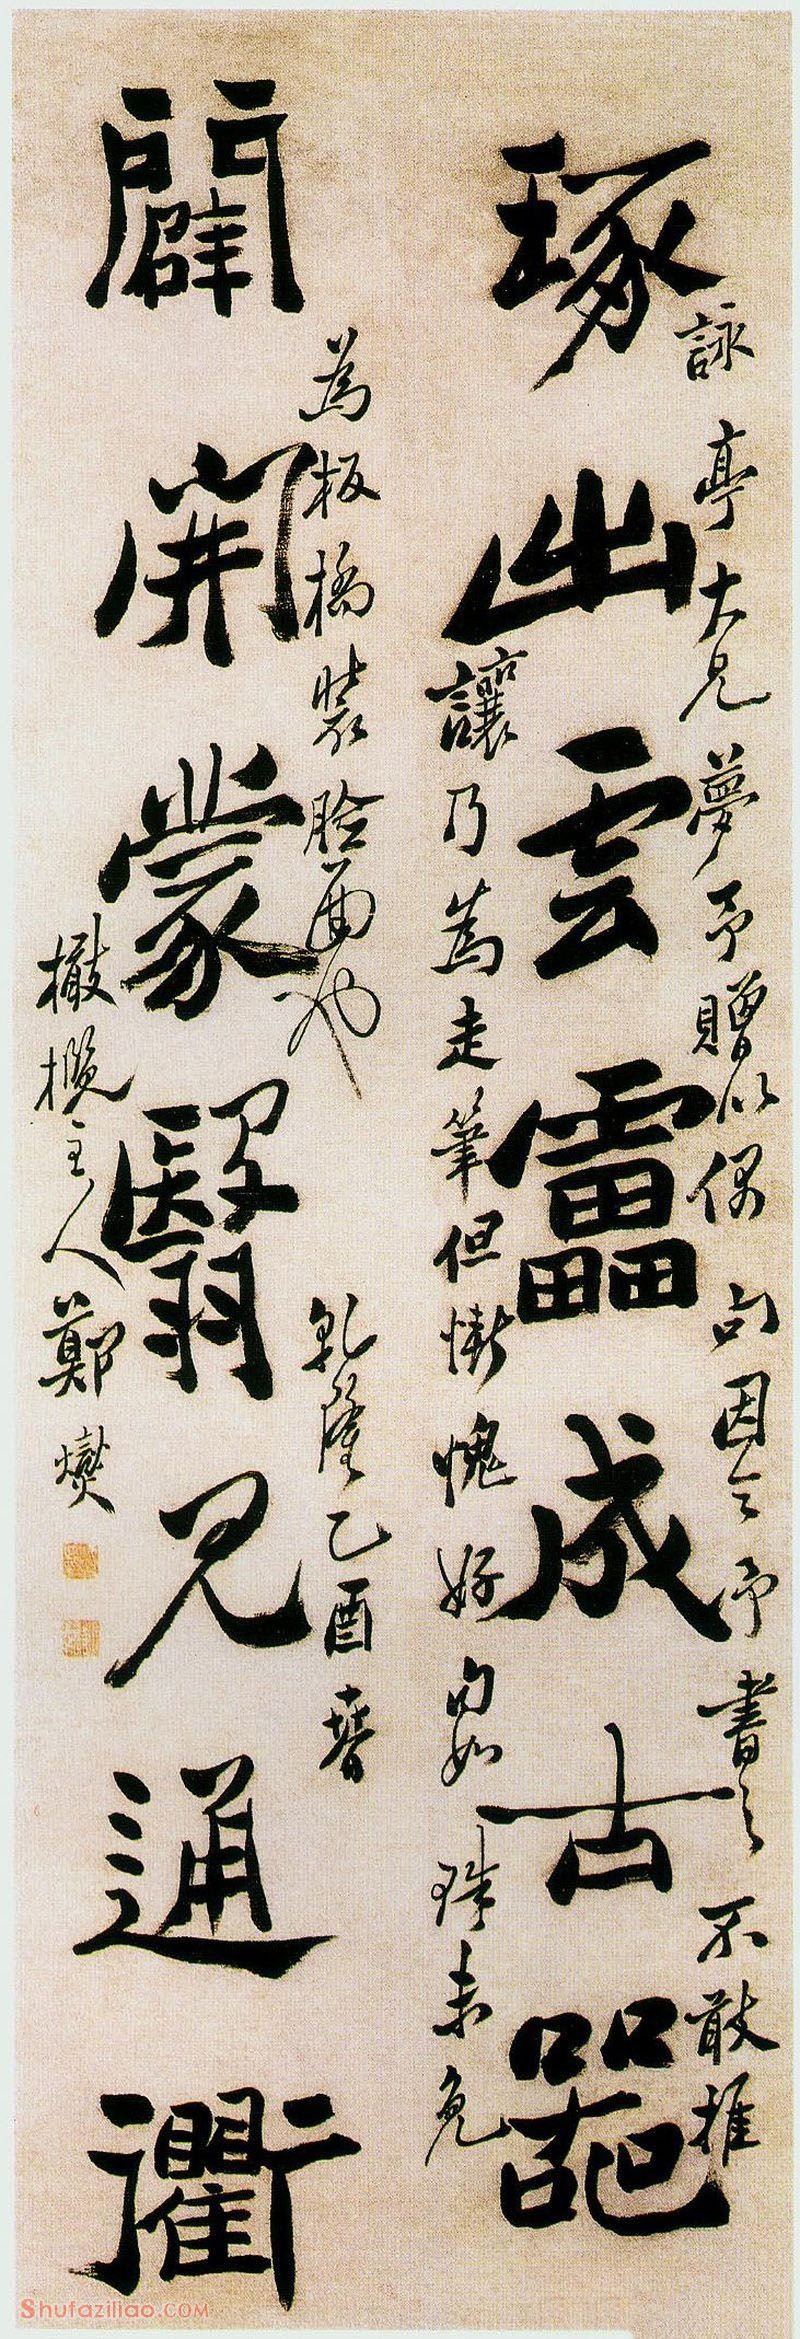 琢出雲雷成古器
詠亭大兄夢予贈以偶句因令予書之不敢推
讓乃為走筆但慚愧好句如珠未免
闢開蒙翳見通衢
為板橋裝臉面也 乾隆乙酉春
橄欖主人鄭燮
Shufaziliao.COM